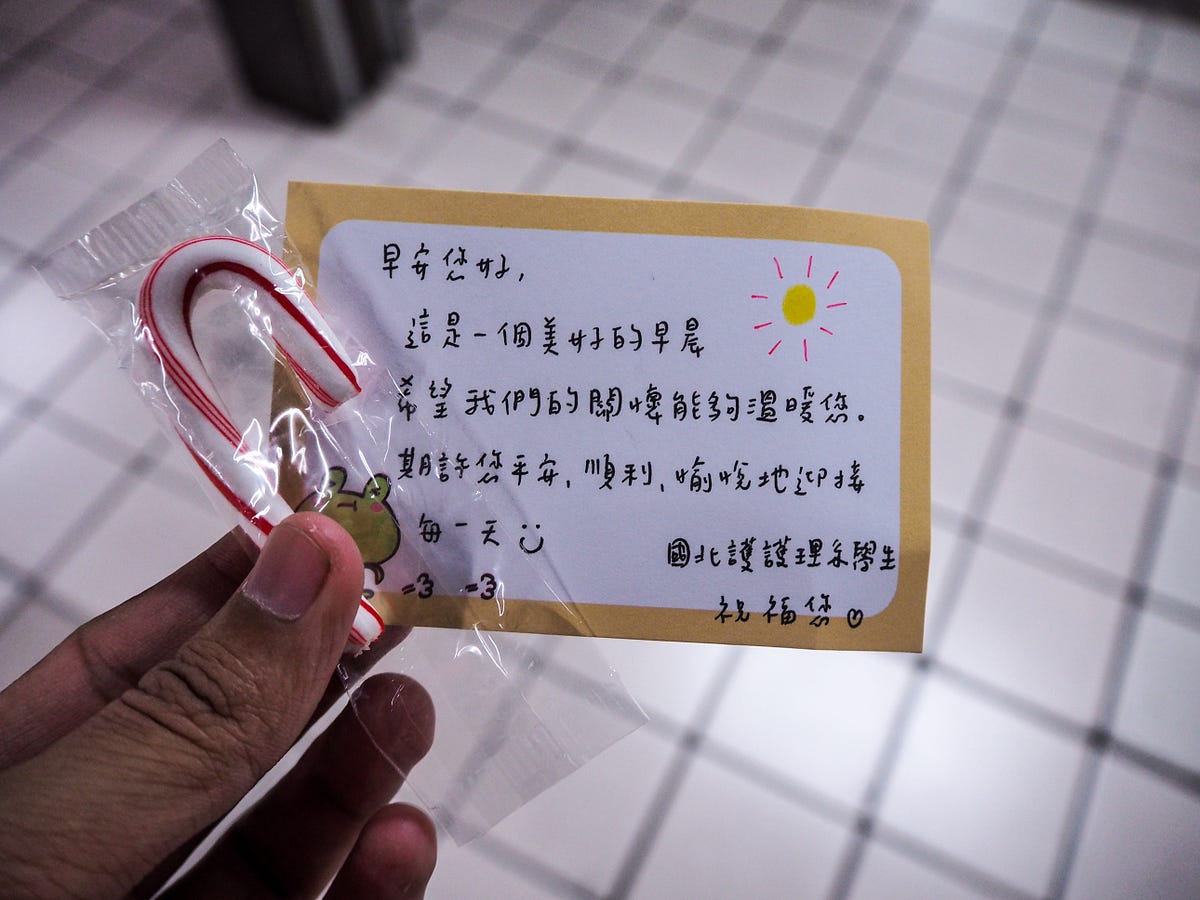 早安您好,
這是一個美好的早晨
希望我們的關懷能夠溫暖您。
期許您平安, 順利, 愉悅地迎接
每一天 :)
=3 =3
國北護護理系學生
祝福您♡